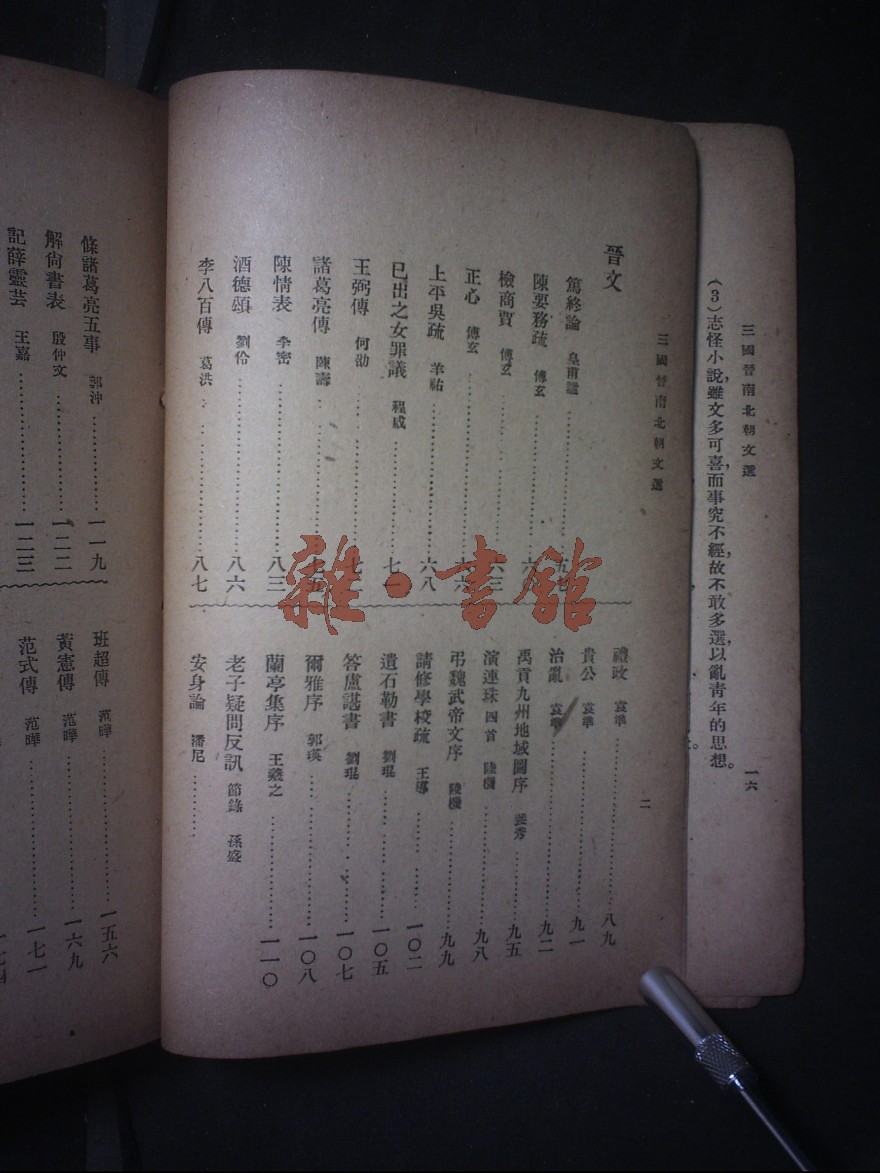 三國晉南北朝文選
一六
(3)志怪小說雖文多可喜,而事究不經,故不敢多選,以亂青年的思想。
三國晉南北朝文選
二
晉文
篤終論 皇甫謐
陳要務疏 傅玄
檢商賈 傅玄 六三
正心 傅玄
上平吳疏 羊祜 六八
已出之女罪議 程咸 七一
王弼傳 何劭
諸葛亮傳 陳壽 七五
陳情表 李密 八三
酒德頌 劉伶 八六
李八百傳 葛洪 八七
禮政 袁準 八九
貴公 袁準 九一
治亂 袁準 九二
禹貢九州地域圖序 裴秀 九五
演連珠 四首 陸機 九八
弔魏武帝文序 陸機 九九
請修學校疏 王導 一〇二
遺石勒書 劉琨 一〇五
答盧諶書 劉琨 一〇七
爾雅序 郭璞 一〇八
蘭亭集序 王羲之 一一〇
老子疑問反訊 節錄 孫盛
安身論 潘尼
條諸葛亮五事 郭沖 一一九
解尚書表 殷仲文 一二二
記薛靈芸 王嘉 一二三
班超傳 范曄 一五六
黃憲傳 范曄 一六九
范式傳 范曄 一七一
雜·書館